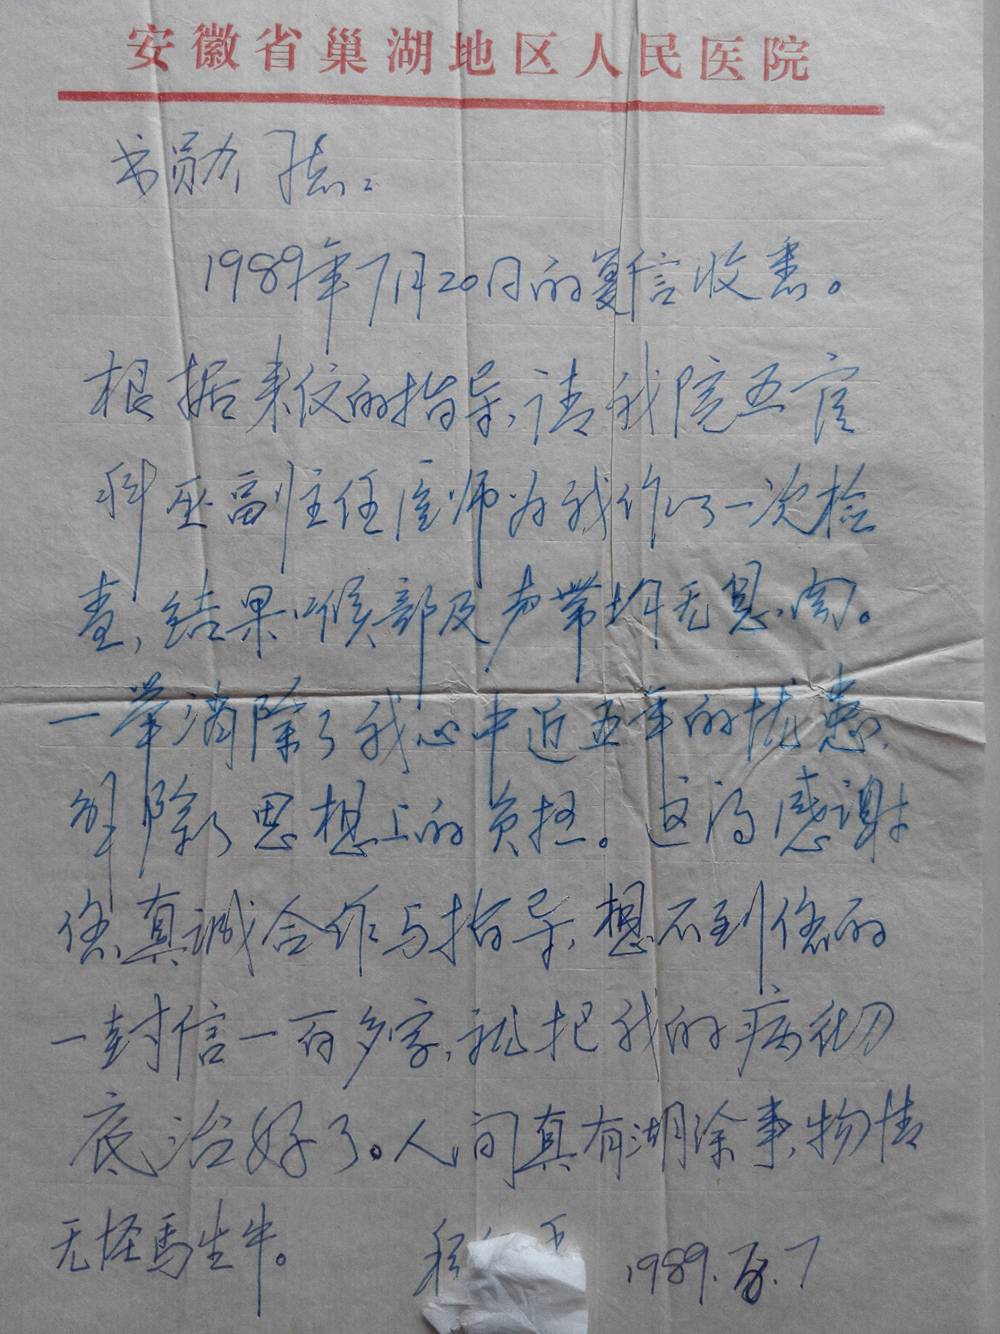 安徽省巢湖地区人民医院
书勋同志：
1989年7月20日的复信收悉。
根据来仪的指导，请我院五官
科巫副主任医师为我作了一次检
查，结果：喉部及声带均无息肉。
一举消除了我心中近五年的忧患，
卸除了思想上的负担。这得感谢
您真诚合作与指导，想不到您的
一封信一百多字，就把我的病彻
底治好了。人间真有湖涂事，物情
无怪馬生牛。
1989.8.7